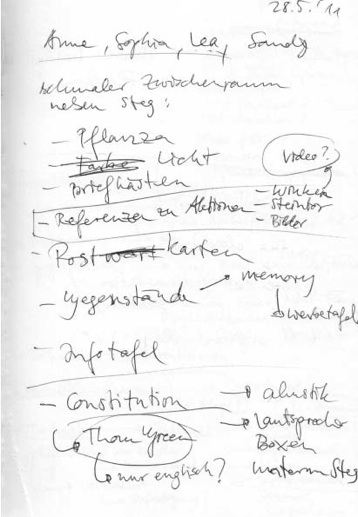 28.5.'11
Anne, Sophia, Lea, Sandy
schmaler Zwischenraum
neben Steg:
- Pflanze
- Farbe Licht
- Briefkästen
Video?
- Referenzen zu Aktionen - winken
- Bilder
- Postwart karten
- Gegenstände → memory
→ werbetafel
- Infotafel
- Constitution → akustik
Thom Green → Lautsprecher
Boxen
nur englisch? unterm Steg